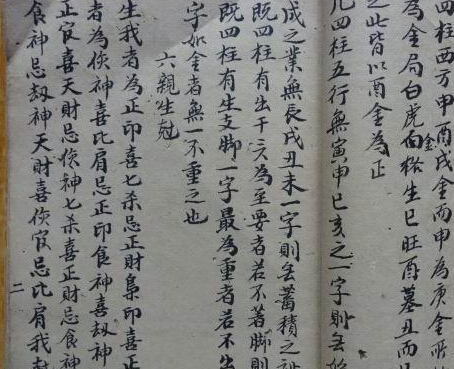 四柱西方申酉戌金而申為庚金所
為金局白虎白格生巳旺酉墓丑而
之此皆以酉金為正
凡四柱五行無寅申巳亥之一字則無
成之業無辰戌丑未一字則無蓄積之
既四柱有出干為至要者若不著脚則
既四柱有生支脚一字最為重者若不
字如金者無一不重之也
六親生尅
生我者為正印喜七杀忌正財梟印喜正
者為傷神喜比肩忌正印食神喜刼神
正官喜天財忌傷神七杀喜正財忌食神
食神忌刼神天財喜傷官忌比肩我尅
二